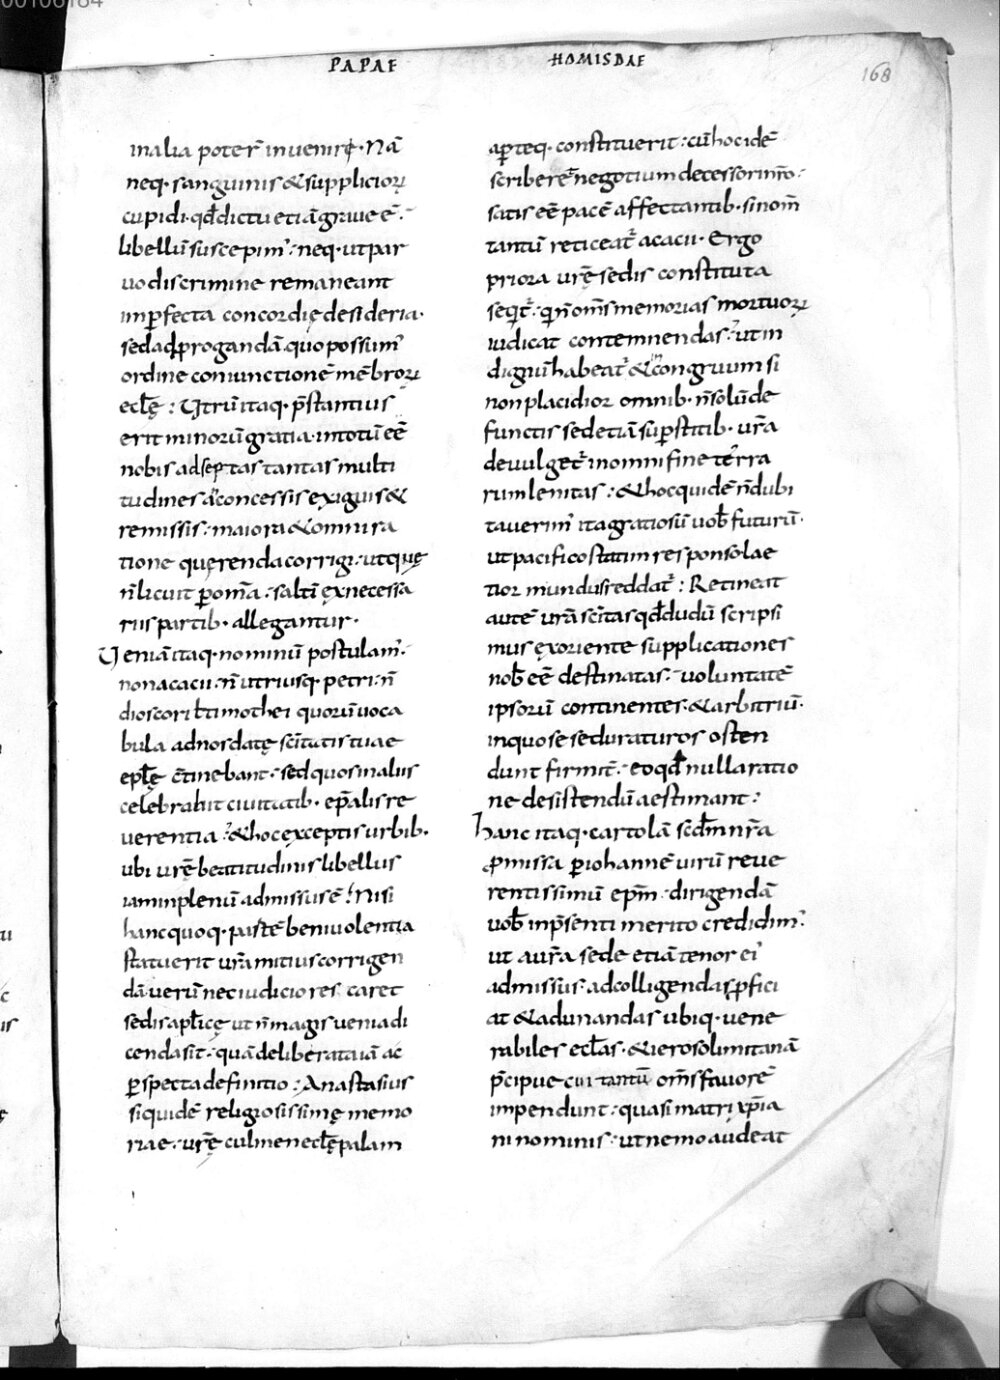 00106184
PAPAE HOMISDAE
168
inalia poter̄ inuenire· Nā
neq· sanguinis & suppliciorꝝ
cupidi· qđ dictu etiā graue ē·
libellū suscepim'· neq· ut par
uo discrimine remaneant
imꝑfecta concordię desideria·
sed ad ꝓrogandā quo possum'
ordine coniunctionē mēbrorꝝ
eccłę : Utrū itaq· p̄stantius
erit minorū gratia· in totū eē
nobis adseptas tantas multi
tudines a concessis exiguis &
remissis : maiora & omni ra
tione querenda corrigi : ut quę
n̄ licuit ꝑ omā : saltī ex necessa
riis partib· allegantur·
Ueniā itaq· nominū postulam'·
non acacii· n̄ utriusq petri· n̄
dioscori ł timothei quorū uoca
bula ad nos datę sc̄itatis tuae
epłę c̄tinebant· sed quos in aliis
celebrabit ciuitatib· ep̄alis re
uerentia : & hoc exceptis urbib·
ubi urē beatitudinis libellus
iam in plenū admissus ē ! Nisi
hanc quoq· partē beniuolentia
statuerit ur̄a mitius corrigen
dā uerū nec iudicio res caret
sedis apłicę ut n̄ magis uenia di
cenda sit : quā deliberata iā ac
ꝑspecta definitio : Anastasius
siquidē religiosissimę memo
riae : urę culmen eccłę palam
aꝑteq· constituerit : cū hoc idē
scriberet̄ negotium decessori nr̄o :
satis eē pacē affectantib· si nom̄
tantū reticeat̄ acacii· Ergo
priora urę sedis constituta
seqit̄ : qi n̄ om̄s memorias mortuorꝝ
iudicat contemnendas : ut in
dignū habeat̄ & incongruum si
non placidior omnib· n̄ solū de
functis sed etiā suꝑstitib· ur̄a
deuulget̄ in omni fine terra
rum lenitas : & hoc quidē n̄ dubi
tauerim' ita gratiosū uob̄ futurū·
ut pacifico statim responso lae
tior mundus reddat̄ : Retineat
autē ur̄a sc̄itas qđ dudū scripsi
mus ex oriente supplicationes
nob̄ eē destinatas : uoluntatē
ipsorū continentes· & arbitriū·
in quo se se duraturos osten
dunt firmit̄ : eo qđ nulla ratio
ne desistendū aestimant :
Hanc itaq· cartolā scđm nr̄a
ꝓmissa ꝑ iohannē uirū reue
rentissimū ep̄m· dirigendā
uob̄ in p̄senti merito credidim' :
ut a ur̄a sede etiā tenor ei'
admissus : ad colligendas ꝓfici
at & adunandas ubiq· uene
rabiles eccłas· & ierosolimitanā
p̄cipue cui tantū om̄s fauorē
impendunt : quasi matri xp̄ia
ni nominis : ut nemo audeat